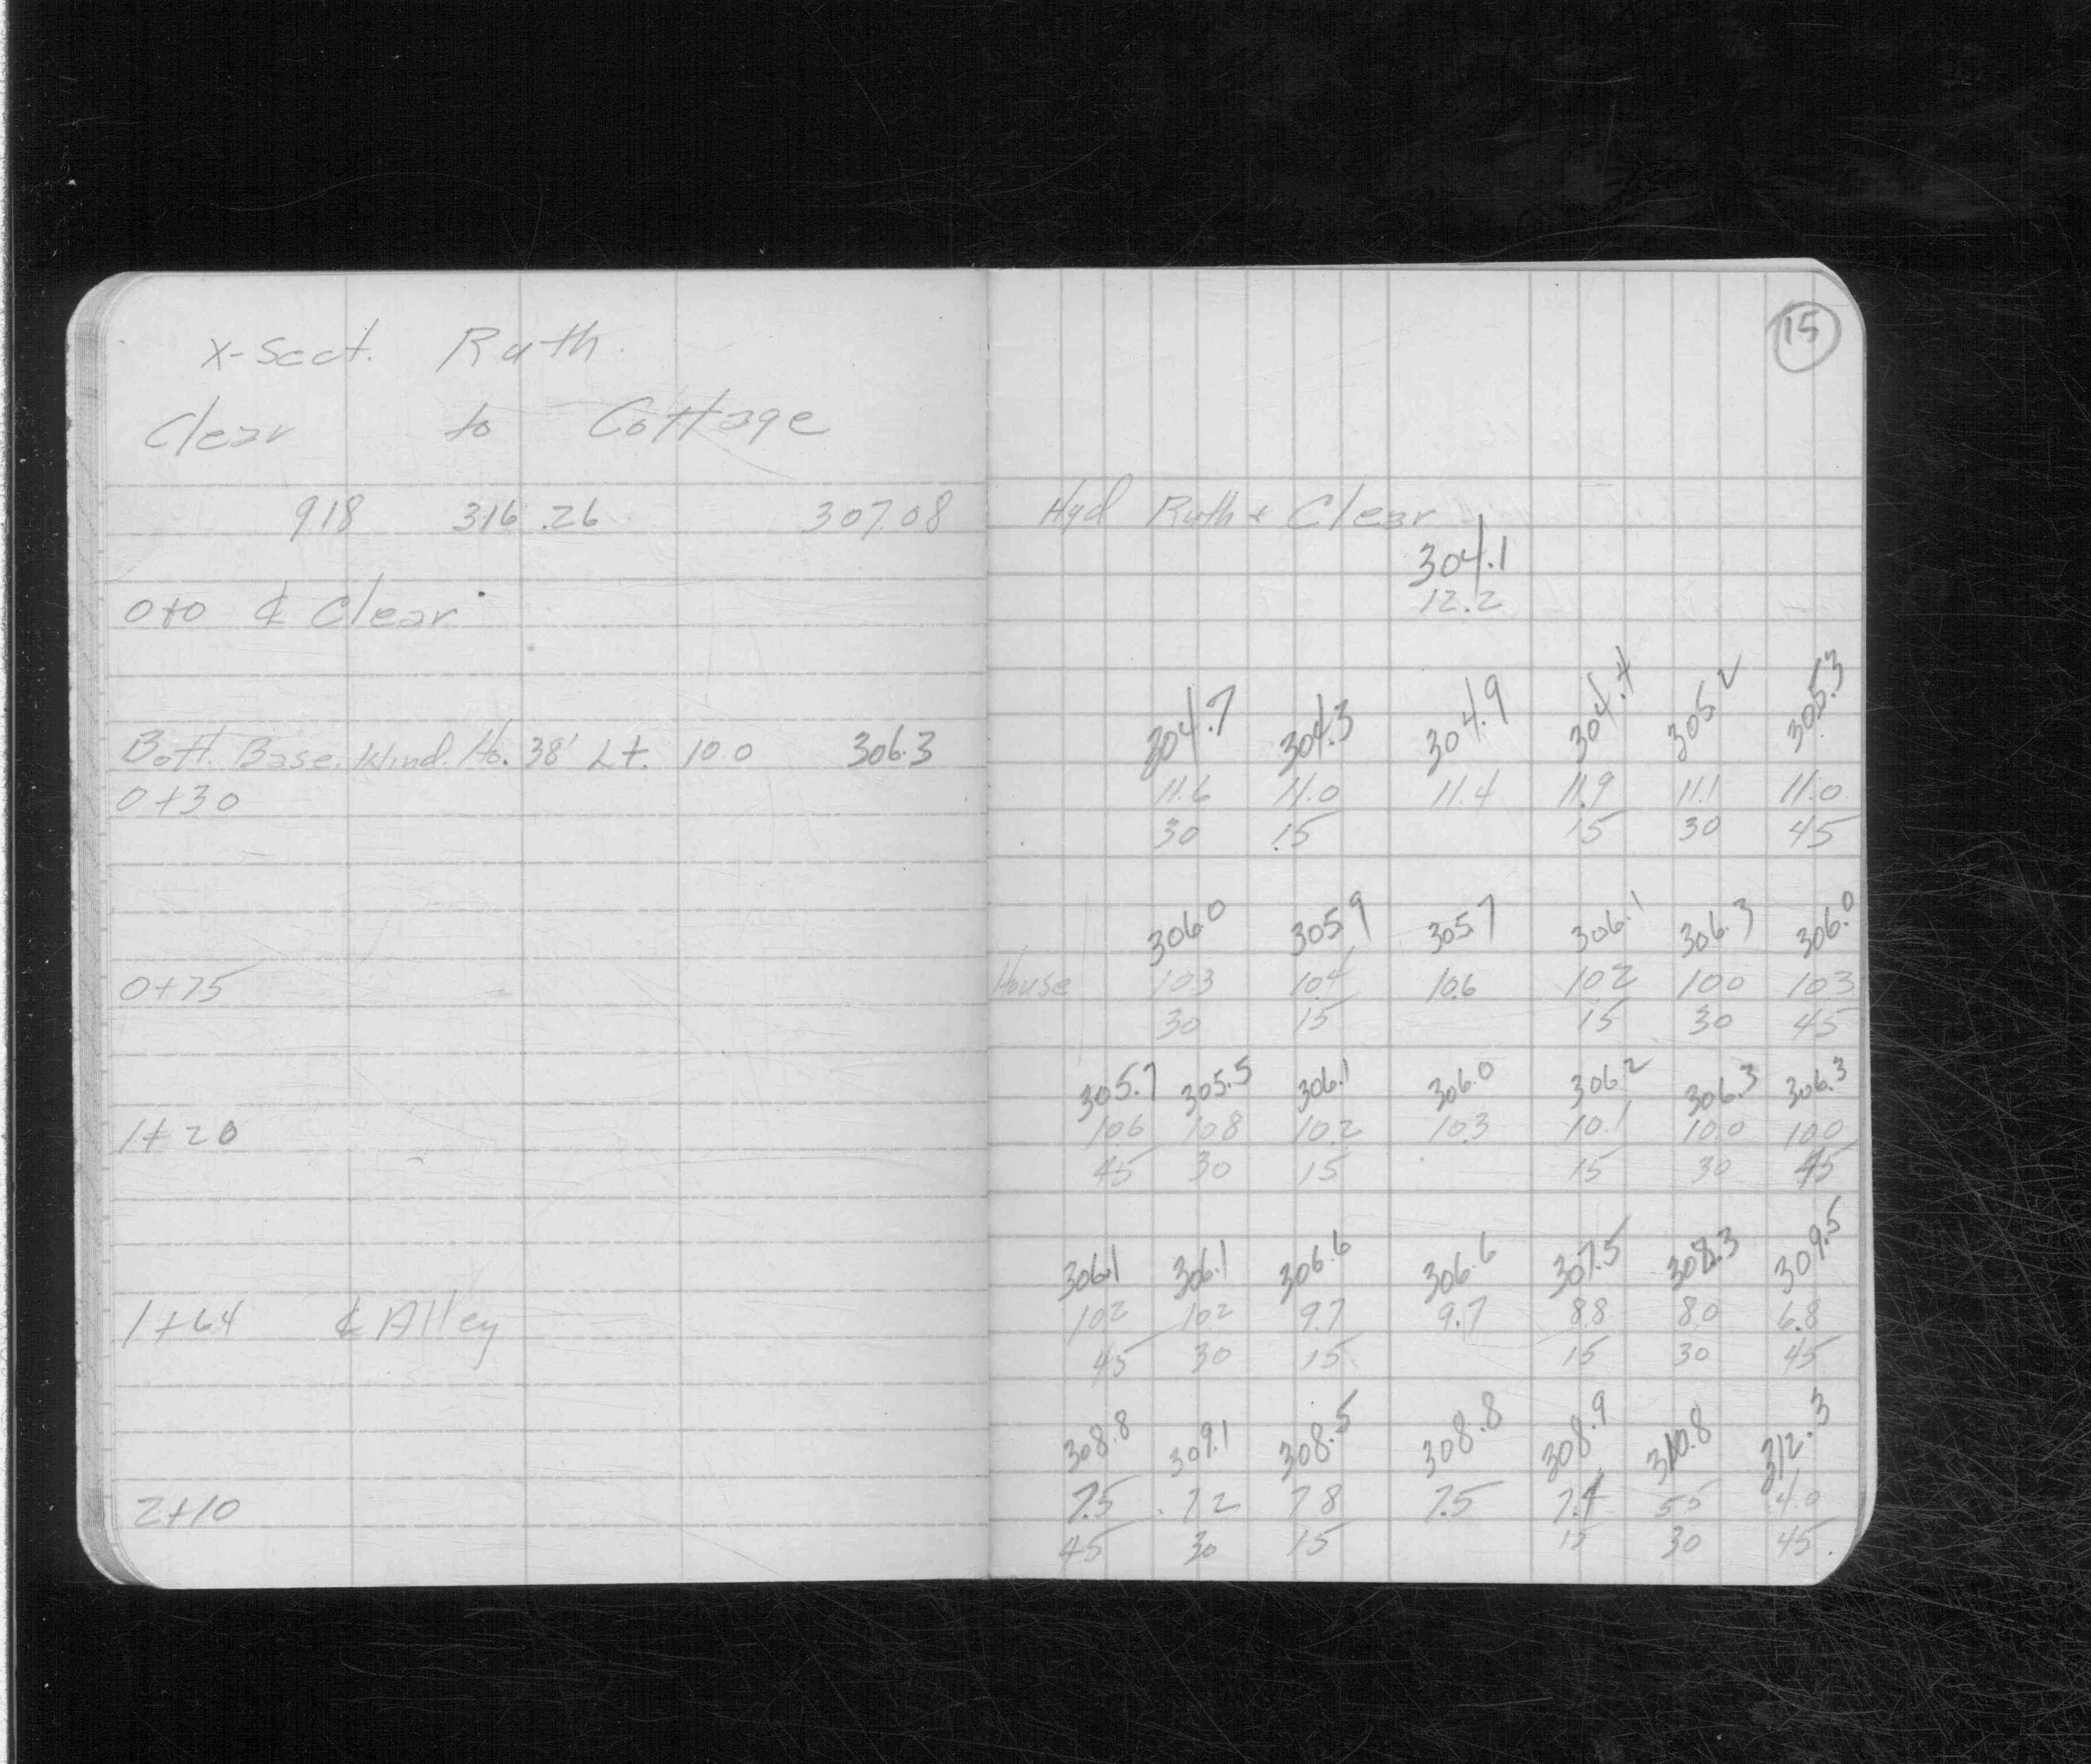 X-Sect. Ruth.
Clear to Cottage
918 316.26 307.08
0+0 ₵ Clear
Bott. Base. Wind. Ho. 38' Lt. 10.0 306.3
0+30
0+75
1+20
1+64 ₵ Alley
2+10
15
Hyd Ruth + Clear
304.1
12.2
304.7 304.3 304.9 304.4 305.2 305.3
11.6 11.0 11.4 11.9 11.1 11.0
30 15 15 30 45
306.0 305.9 305.7 306.1 306.3 306.0
House 10.3 10.4 10.6 10.2 10.0 10.3
30 15 15 30 45
305.7 305.5 306.1 306.0 306.2 306.3 306.3
10.6 10.8 10.2 10.3 10.1 10.0 10.0
45 30 15 15 30 45
306.1 306.1 306.6 306.6 307.5 308.3 309.5
10.2 10.2 9.7 9.7 8.8 8.0 6.8
45 30 15 15 30 45
308.8 309.1 308.5 308.8 308.9 310.8 312.3
7.5 7.2 7.8 7.5 7.4 5.5 4.0
45 30 15 15 30 45